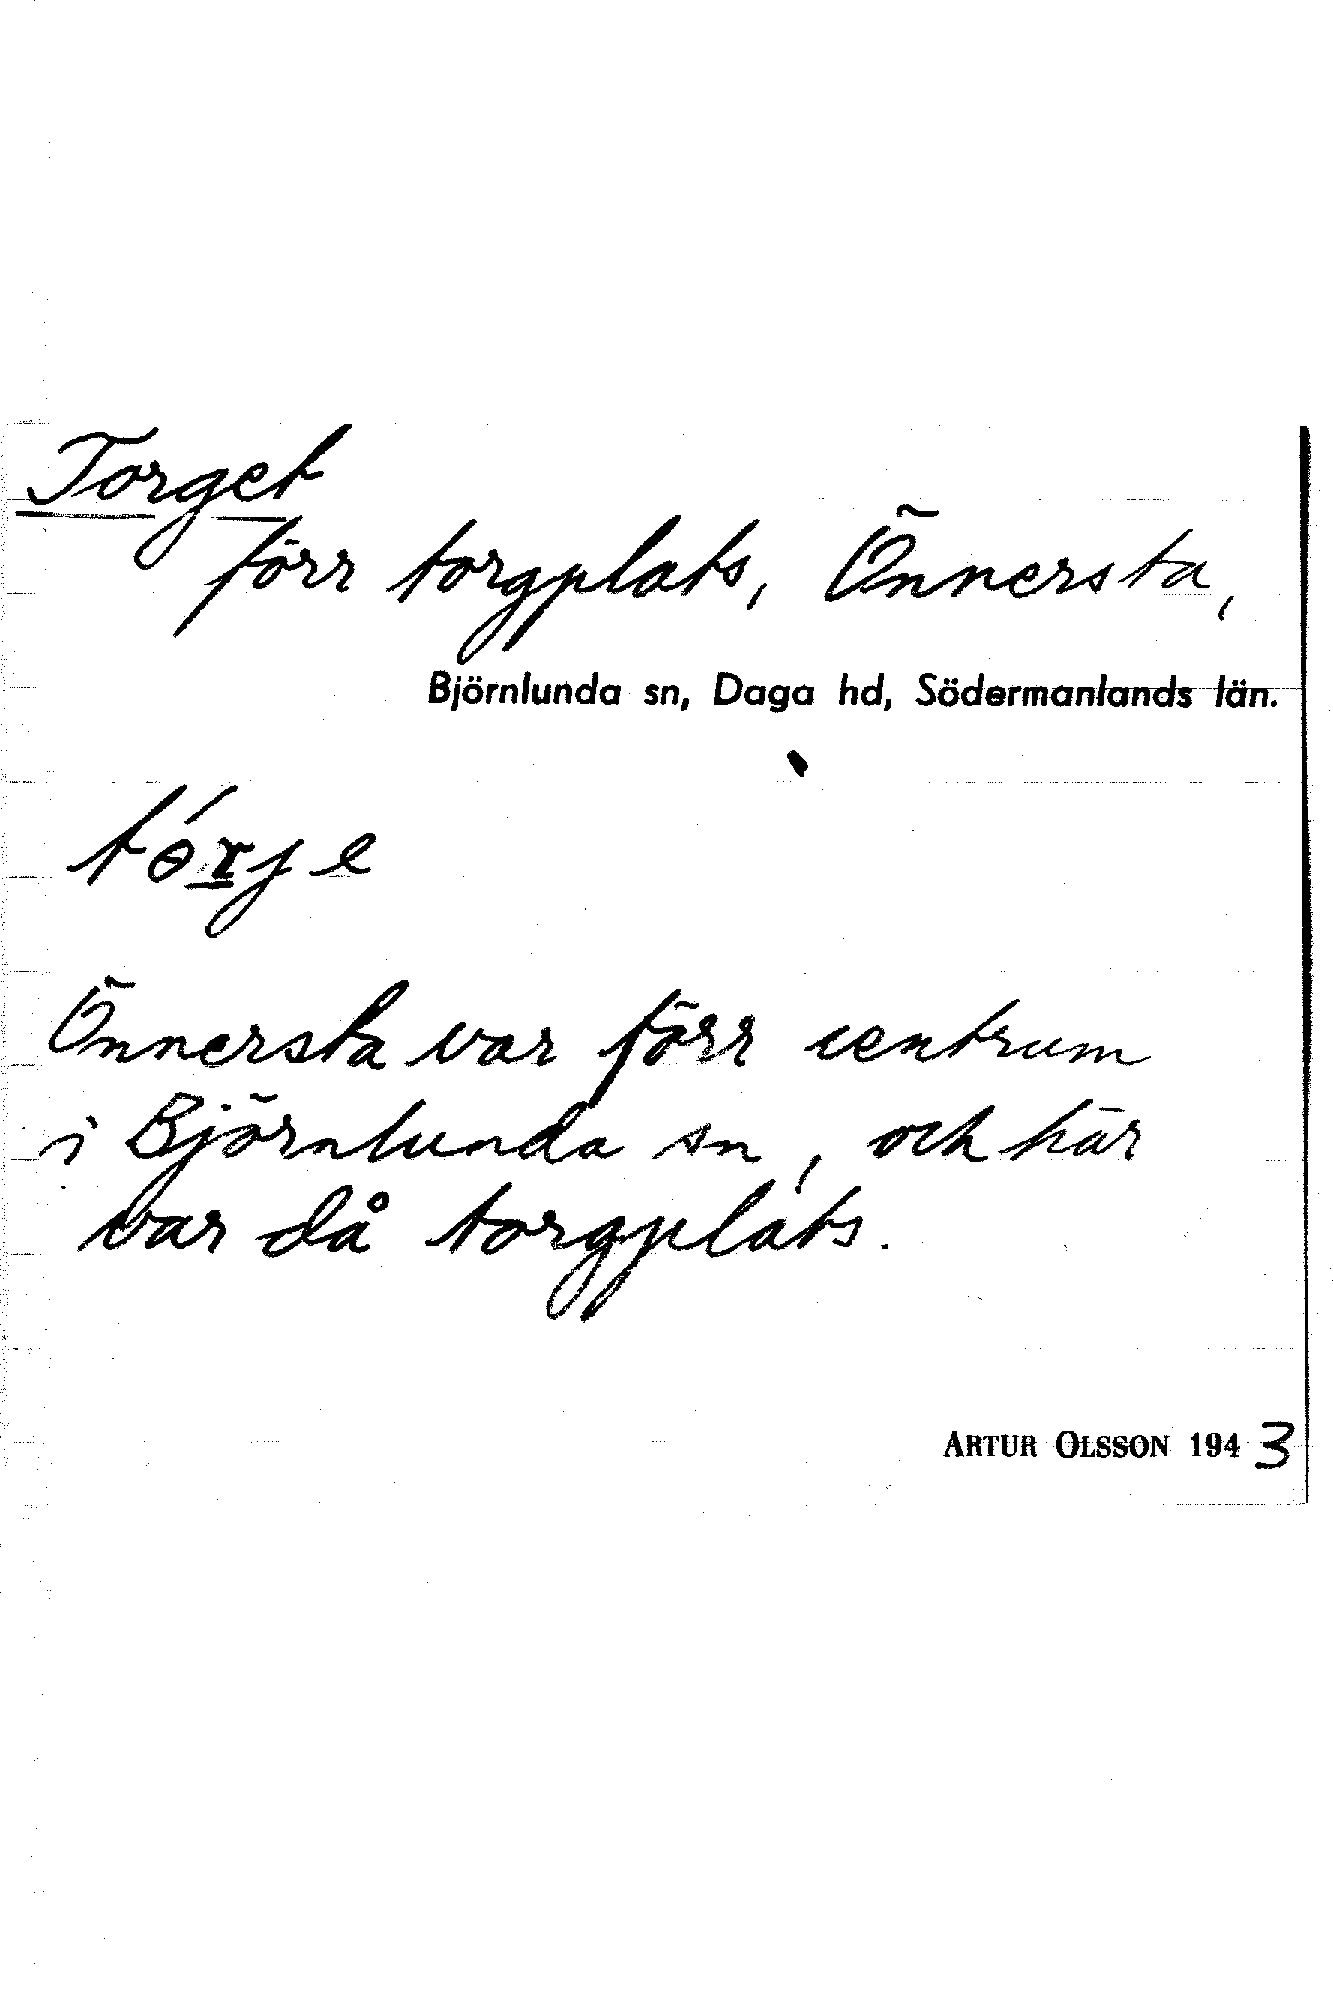 Torget
förr torgplats, Önnersta,
Björnlunda sn, Daga hd, Södermanlands län.
tɵ́rje
Önnersta var förr centrum
i Björnlunda sn, och här
var då torgplats.
ARTUR OLSSON 1943